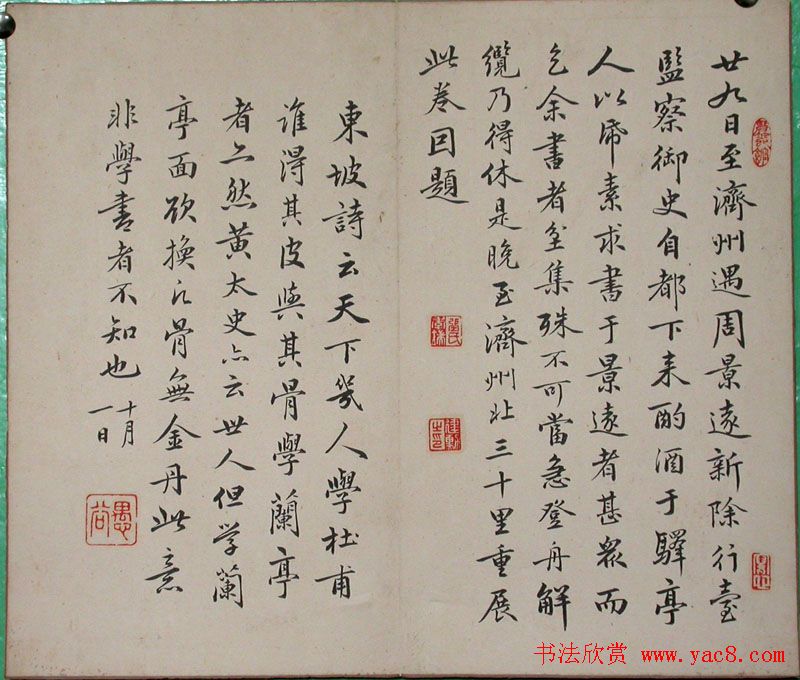 廿九日至濟州遇周景遠新除行臺
監察御史自都下来酌酒于驛亭
人以帋素求書于景遠者甚衆而
乞余書者坌集殊不可當急登舟解
纜乃得休是晚至濟州北三十里重展
此卷因題
東坡詩云天下幾人學杜甫
誰得其皮與其骨學蘭亭
者亦然黄太史亦云世人但学蘭
亭面欲換凡骨無金丹此意
非學書者不知也
十月
一日
愚谷
書法欣赏 www.yac8.com